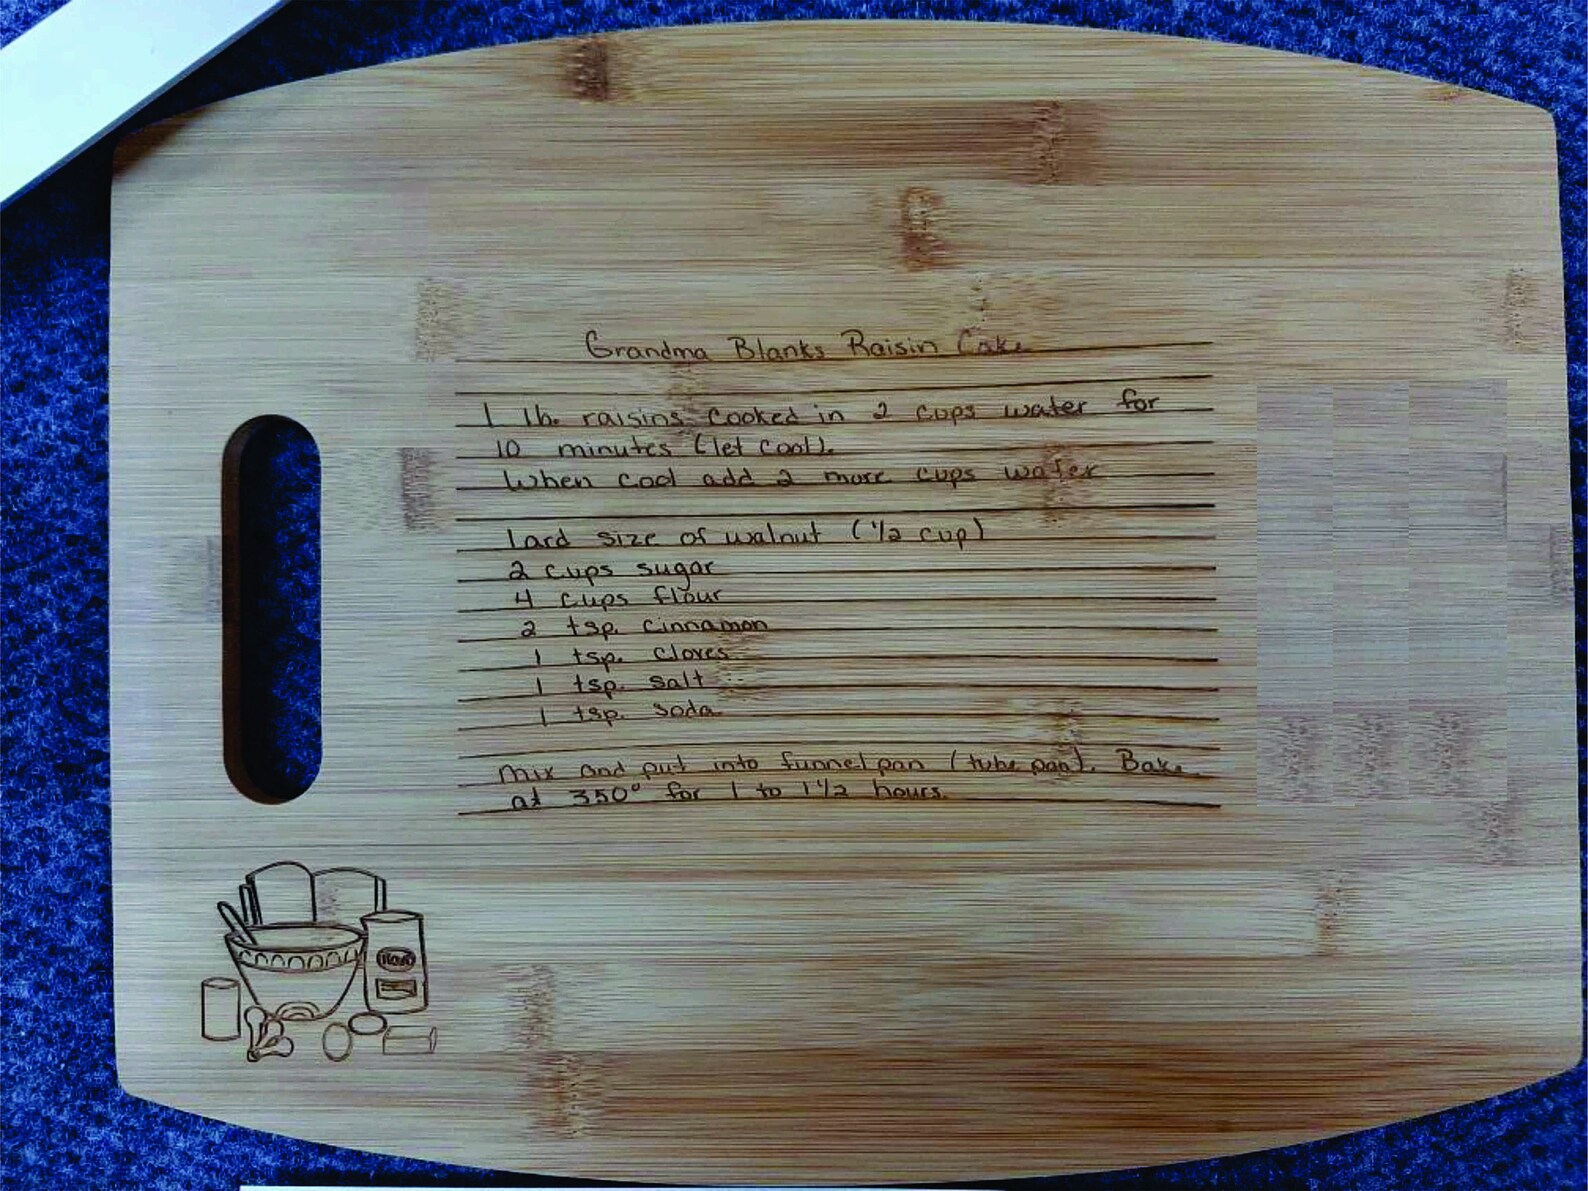 Grandma Blanks Raisin Cake
1 lb. raisins cooked in 2 cups water for
10 minutes (let cool).
When cool add 2 more cups water
lard size of walnut (1/2 cup)
2 cups sugar
4 cups flour
2 tsp. cinnamon
1 tsp. cloves
1 tsp. salt
1 tsp. soda
Mix and put into funnel pan (tube pan). Bake
at 350° for 1 to 1 1/2 hours.